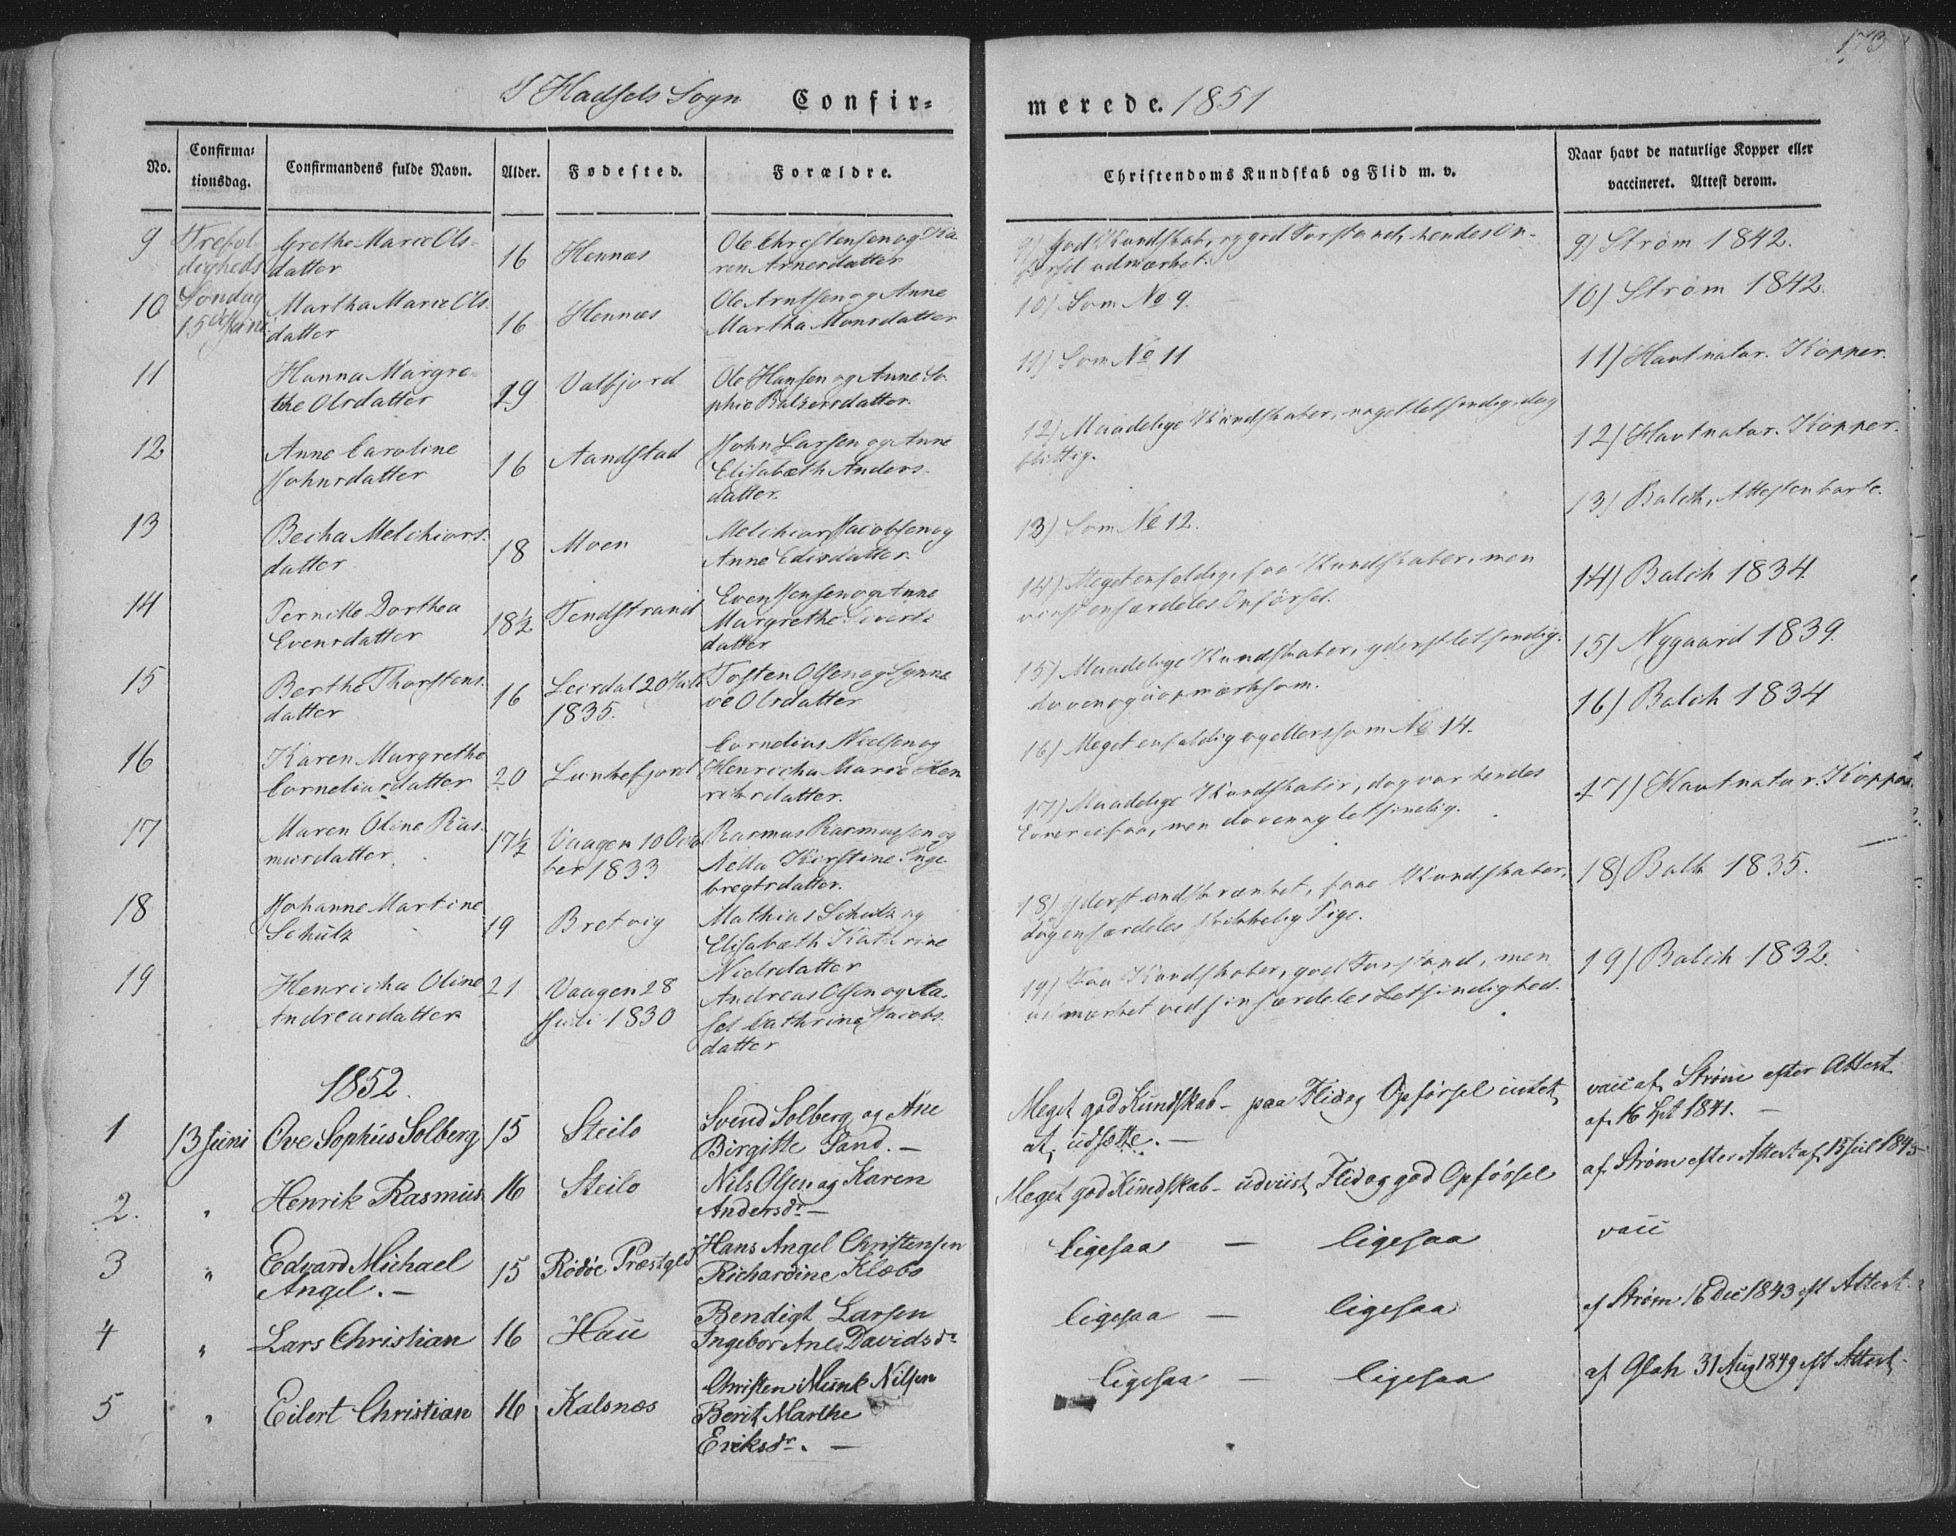 173
I Hadsels Sogn Confir-
merede. 1851
No.
Confirma-
tionsdag.
Confirmandens fulde Navn.
Alder.
Fødested.
Forældre.
Christendoms Kundskab og Flid m. v.
Naar havt de naturlige Kopper eller
vaccineret. Attest derom.
9 Trefol- Grethe Marie Ols- 16 Hennæs Ole Christensen og Ka
digheds datter ren Arnesdatter
9) God Kundskab, og god Forstand, hendes On-
førsel udmærket.
9) Strøm 1842.
10 Søndag Martha Marie Ols- 16 Hennæs Ole Arntsen og Anne
15de Juni datter Martha Monsdatter
10) Som No 9.
10) Strøm 1842.
11 Hanna Margre- 19 Valfjord Ole Hansen og Anne So-
the Olsdatter phie Balzersdatter.
11) Som No 11
11) Havt natur. Kopper.
12 Anne Caroline 16 Aandstad John Larsen og Anne
Johnsdatter Elisabeth Anders-
datter.
12) Maadelige Kundskaber, noget letsindig, dog
flittig.
12) Havt natur. Kopper.
13 Becha Melchiors- 18 Moen Melchior Jacobsen og
datter Anne Edisdatter.
13) Som No 12.
13) Balch, Attesten borte.
14 Pernille Dorthea 18½ Tendstrand Even Jensen og Anne
Evensdatter Margrethe Siverts
datter
14) Meget enfoldig, faa Kundskaber, men
viist særdeles Onførsel.
14) Balch 1834.
15 Berthe Thorstens- 16 Leirdal 20 Juli Tosten Olsen og Synne
datter 1835. ve Olsdatter
15) Maadelige Kundskaber, yderst letsindig,
doven og uopmærksom.
15) Nygaard 1839.
16 Karen Margrethe 20 Lunkefjord Cornelius Nielsen og
Corneliusdatter Henricha Marie Hen
riksdatter.
16) Meget enfoldig og ellers som No 14.
16) Balch 1834
17 Maren Oline Ras- 17½ Vaagen 10 Octo Rasmus Rasmussen og
musdatter. ber 1833 Nella Kirstine Inge
bregtsdatter.
17) Maadelige Kundskaber, dog var hendes
Evner ei faa, men doven og letsindig.
17) Havt natur. Kopper.
18 Johanne Martine 19 Bretvig Mathias Schulz og
Schulz Elisabeth Kathrine
Nielsdatter
18) yderst indskrænket, faae Kundskaber,
dog en særdeles skikkelig Pige.
18) Balch 1835.
19 Henricha Oline 21 Vaagen 28 Andreas Olsen og Aa-
Andreasdatter Juli 1830 sel Cathrine Jacobs-
datter
19) Faa Kundskaber, god Forstand, men
udmærket ved sin særdeles Letsindighed.
19) Balch 1832.
1852.
1 13 Juni Ove Sophus Solberg 15 Steilo Svend Solberg og Ane
Birgitte Sand. —
Meget god Kundskab - paa Flid og Opførsel intet
at udsætte. —
vacc af Strøm efter Attest
af 16 Spt 1841. —
2. " Henrik Rasmus 16 Steilo Nils Olsen og Karen
Andersdr —
Meget god Kundskab - udviist Flid og god Opførsel
af Strøm efter Attest af 15 Jul 1845
3 " Edvard Michael 15 Rødøe Præstgld Hans Angel Christensen
Angel. — Richardine Klæbo
ligesaa — ligesaa
vacc
4 " Lars Christian 16 Hau Bendigt Larsen
Ingebor Ane Davidsdr
ligesaa — ligesaa
af Strøm 16 Dec 1843 eft Attest
5 " Eilert Christian 16 Kalsnæs Christen Munk Nilsen
Berit Marthe
Eriksdr. —
ligesaa — ligesaa
af Glah 31 Aug 1849 eft Attest